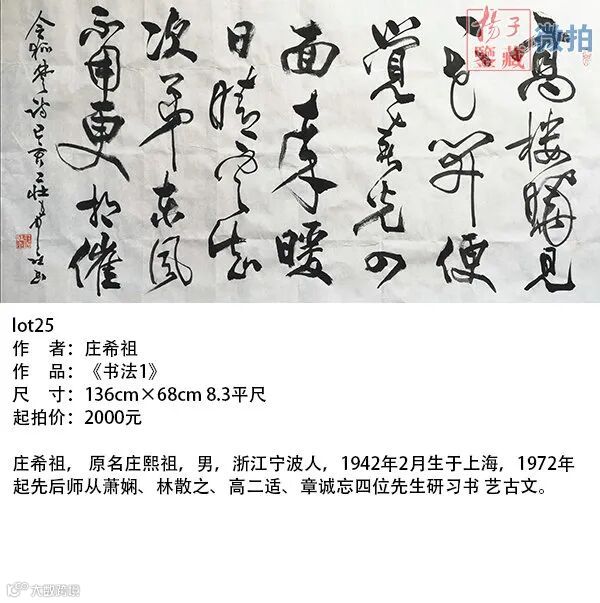 揚子
鑒藏
微拍
高樓曉見
一花開便
覺春光四
面來暖
日晴雲知
次第東風
不用更相催
令狐楚詩
lot25
作 者：庄希祖
作 品：《书法1》
尺 寸：136cm×68cm 8.3平尺
起拍价：2000元
庄希祖， 原名庄熙祖，男，浙江宁波人，1942年2月生于上海，1972年
起先后师从萧娴、林散之、高二适、章诚忘四位先生研习书 艺古文。
大数跨境